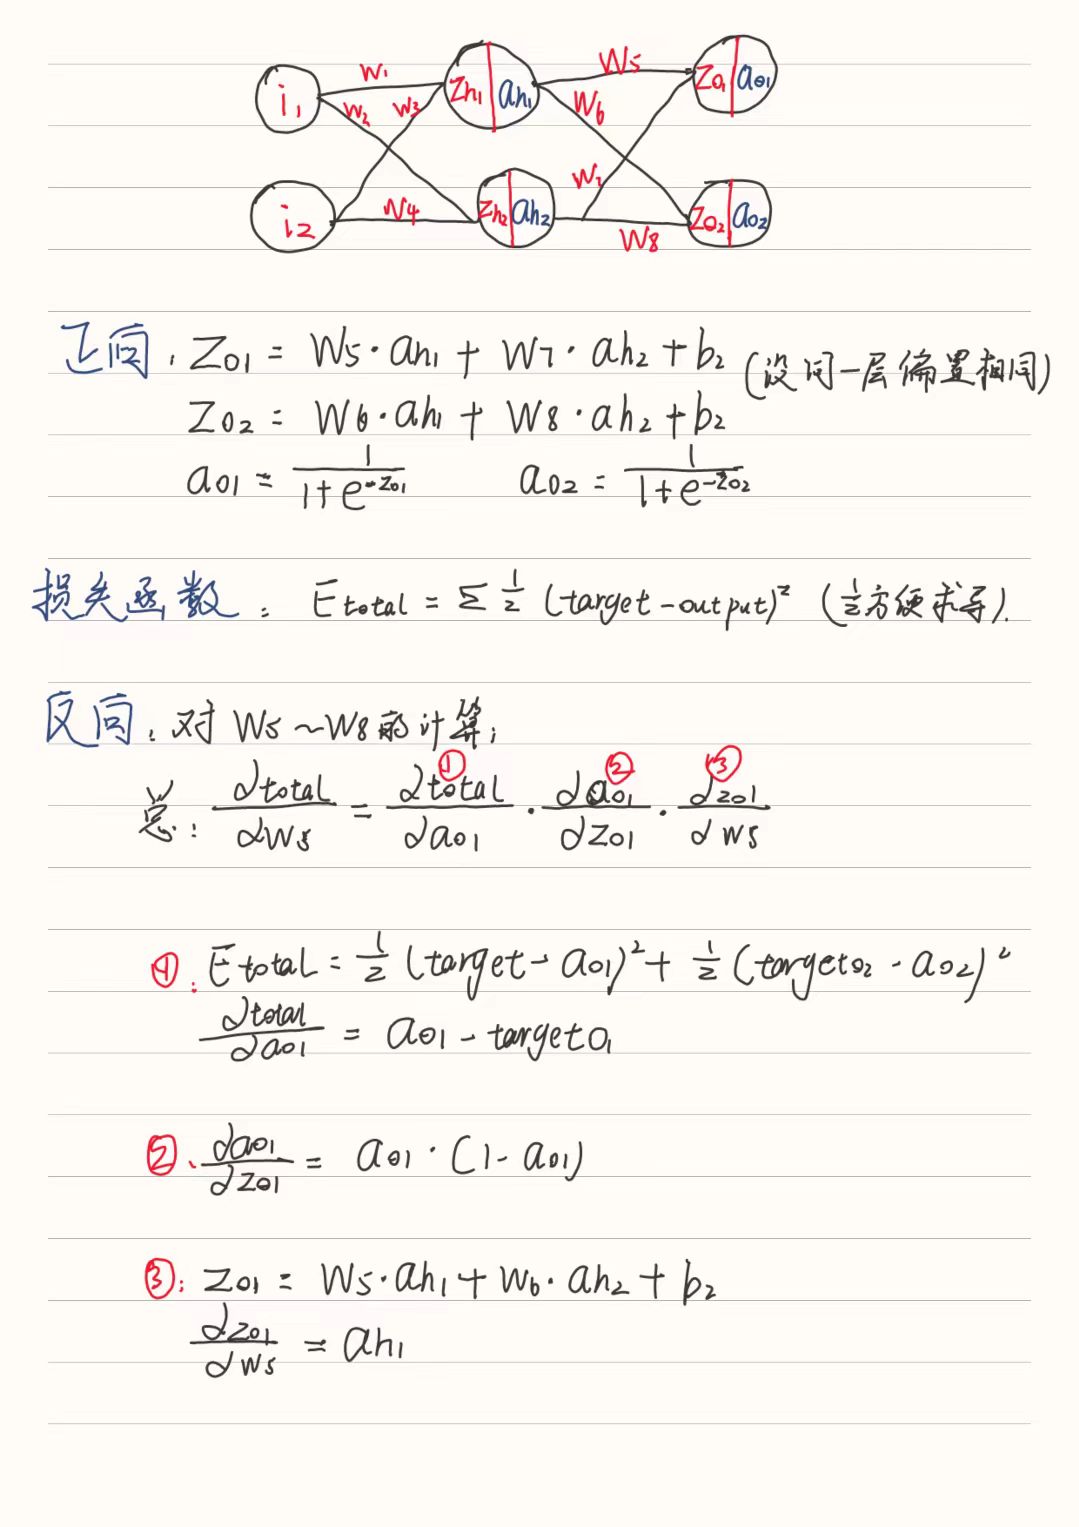 i₁ W₁ W₂ W₃ Zh₁ ah₁ W₅ W₆ Zo₁ ao1
i₂ W4 Zh₂ ah₂ W₇ W8 Zo₂ ao2
正向: Zo1 = W5·ah₁ + W7·ah₂ + b₂ (设同一层偏置相同)
Zo₂ = W6·ah₁ + W8·ah₂ + b₂
ao1 = 1/(1+e^-zo1) ao2 = 1/(1+e^-zo2)
损失函数: Etotal = Σ ½ (target-output)² (½方便求导).
反向: 对 W5~W8的计算;
总: ∂total/∂W5 = ①∂total/∂ao1 · ②∂ao1/∂zo1 · ③∂zo1/∂W5
①: Etotal = ½ (target - ao1)² + ½ (targeto₂ - ao2)²
∂total/∂ao1 = ao1 - targeto₁
②、∂ao1/∂zo1 = ao1·(1-ao1)
③: Zo1 = W5·ah₁ + W6·ah₂ + b₂
∂zo1/∂W5 = ah₁